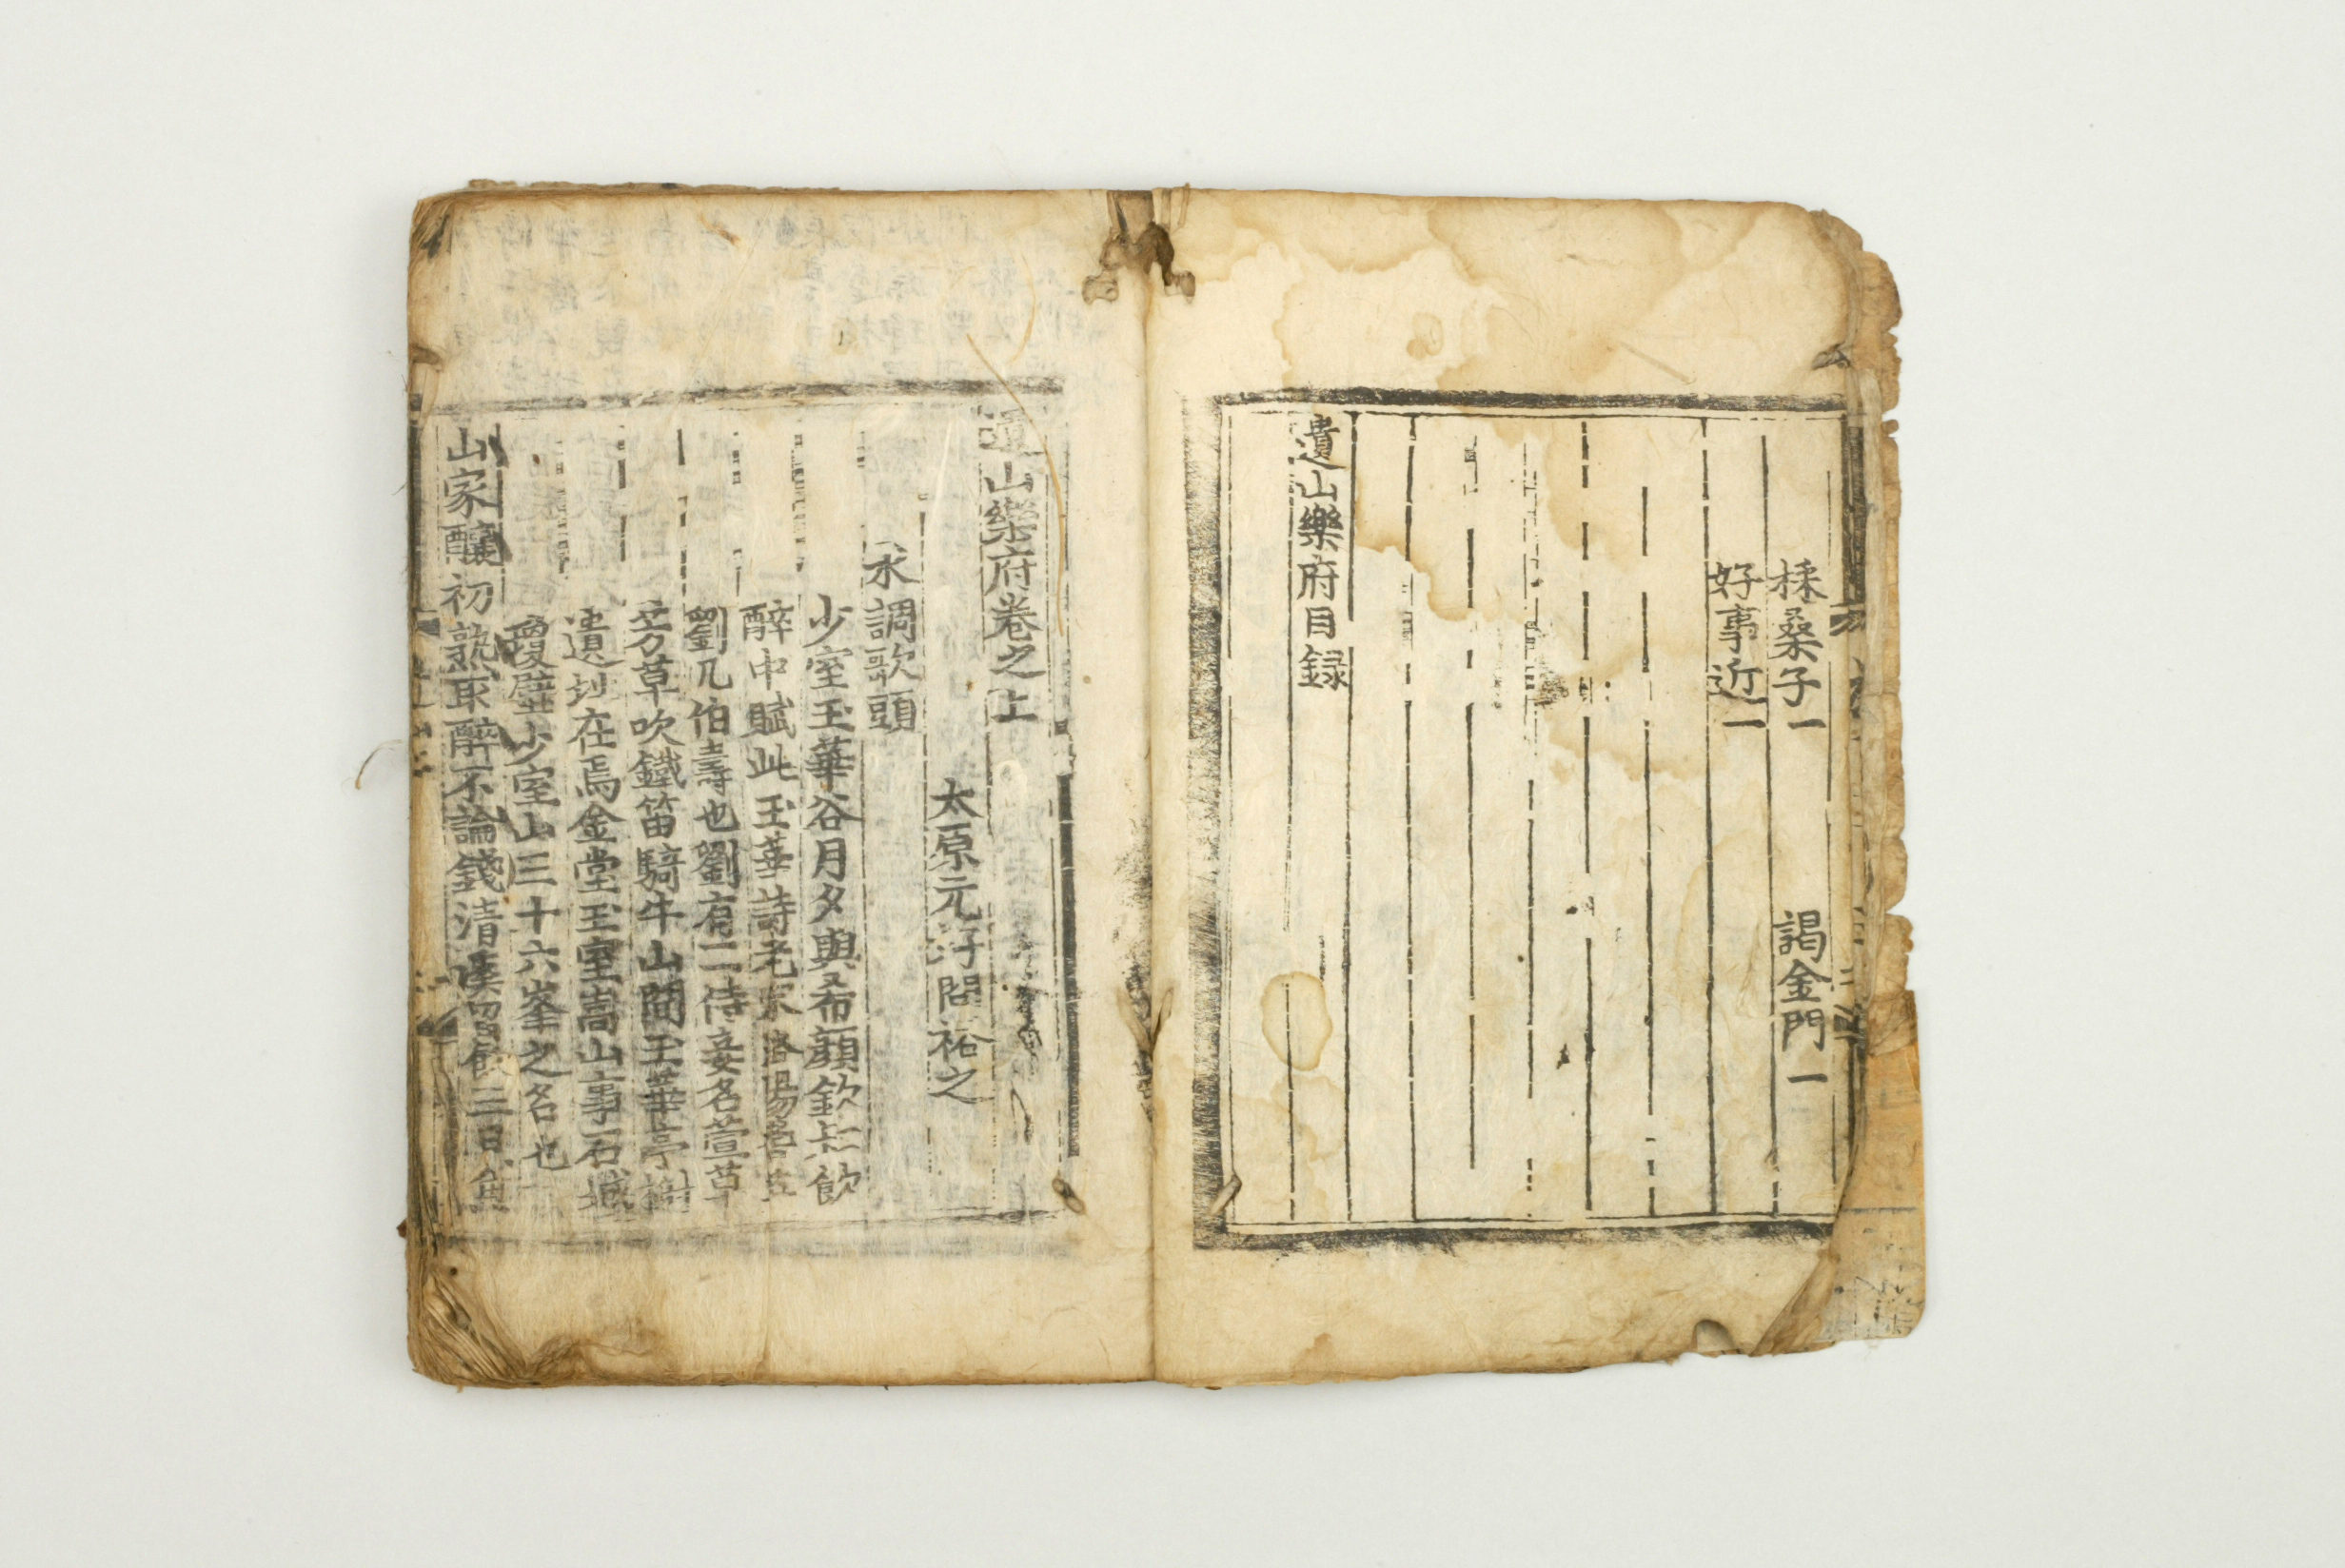 採桑子一 謁金門一
好事近一
遺山樂府目録
遺山樂府卷之上
太原元好問裕之
水調歌頭
少室玉華谷月夕與希顔欽叔飲
醉中賦此玉華詩老宋洛陽耆英
劉几伯壽也劉有二侍妾名萱草
芳草吹鐵笛騎牛山間玉華亭榭
遺址在焉金堂玉室嵩山事石城
瓊壁少室山三十六峯之名也
山家釀初熟取醉不論錢清溪留飲三日魚